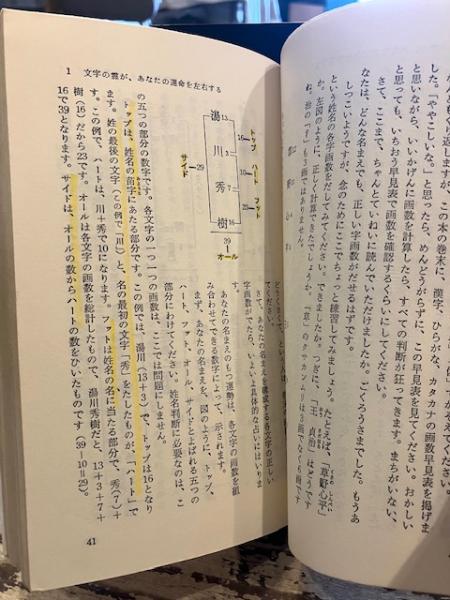 した。「ややこしいな。」と思ったら、めんどうがらずに、この早見表を見てください。おかしい
と思いながら、いいかげんに画数を計算したら、すべての判断が狂ってきます。まちがいない、
と思っても、もういちおう早見表で画数を確認するぐらいにしてください。
さて、ここまで、ちゃんとていねいに読んでいただけましたか。ごくろうさまでした。もうあ
なたは、どんな名まえでも、正しい字画数がだせるはずです。
しつこいようですが、念のためにここでちょっと練習してみましょう。たとえば、「草野心平」
という姓名の各字画数をだしてみてください。できましたか。つぎに、「王　貞治」はどうです
か。左図のように、正しく計算できたでしょうか。「草」のクサカンムリは3画でなく6画です
1　文字の霊が、あなたの運命を左右する
湯13
川3
秀7
樹16
16
10
23
29
39
トップ
ハート
フット
サイド
オール
てください。
さて、あなたの名まえを構成する各文字の正しい
字画数がでたら、いよいよ具体的な占いにはいりま
す。
あなたの名まえのもつ運勢は、各文字の画数を組
み合わせてできる数字によって、示されます。
まず、あなたの名まえを、図のように、トップ、
ハート、フット、オール、サイドとよばれる五つの
部分にわけてください。姓名判断に必要なのは、こ
の五つの部分の数字です。各文字の一つ一つの画数は、ここでは問題にしません。
トップは、姓名の苗字にあたる部分です。この例では、湯川(13＋3)で、トップは16となり
ます。姓の最後の文字(この例で「川」)と、名の最初の文字「秀」をたしたものが、「ハート」で
す。この例で、ハートは、川＋秀で10になります。フットは姓名の名に当たる部分で、秀(7)＋
樹(16)だから23です。オールは各文字の画数を総計したもので、湯川秀樹だと、13＋3＋7＋
16で39となります。サイドは、オールの数からハートの数をひいたものです(39－10＝29)。
41